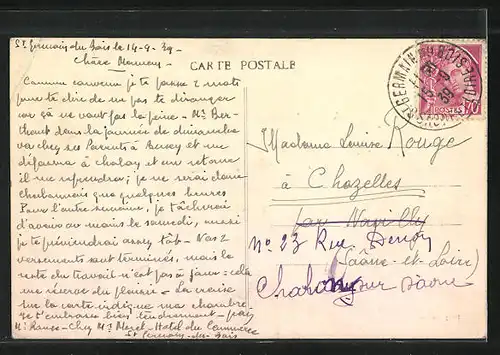 St Germain du Bois le 14-9-39
Chère Maman
CARTE POSTALE
Comme convenu je te passe 2 mots
pour te dire de ne pas te déranger
car ça ne vaut pas la peine - Mr Ber-
theaut dans la journée de dimanche
va chez ses Parents à
me
déposera à chalon et en retour
il me reprendra; je ne serai donc
que quelques heures
Pour l'autre semaine, je tâcherai
d'avoir au moins le samedi, aussi
je te préviendrai assez tôt - Nos 2
versements sont terminés, mais le
reste du travail n'est pas à jour: cela
me plaisir - La croix
sur la carte indique ma chambre
Je t'embrasse bien tendrement -
Mr Rouge - Chez Mr Morel - Hotel du Commerce
St Germain-du-Bois
Madame Louise Rouge
à Chazelles
par
No 23 Rue Denon
(Saône-et-Loire)
Chalon sur Saone
ST GERMAIN DU BOIS
POSTES
70